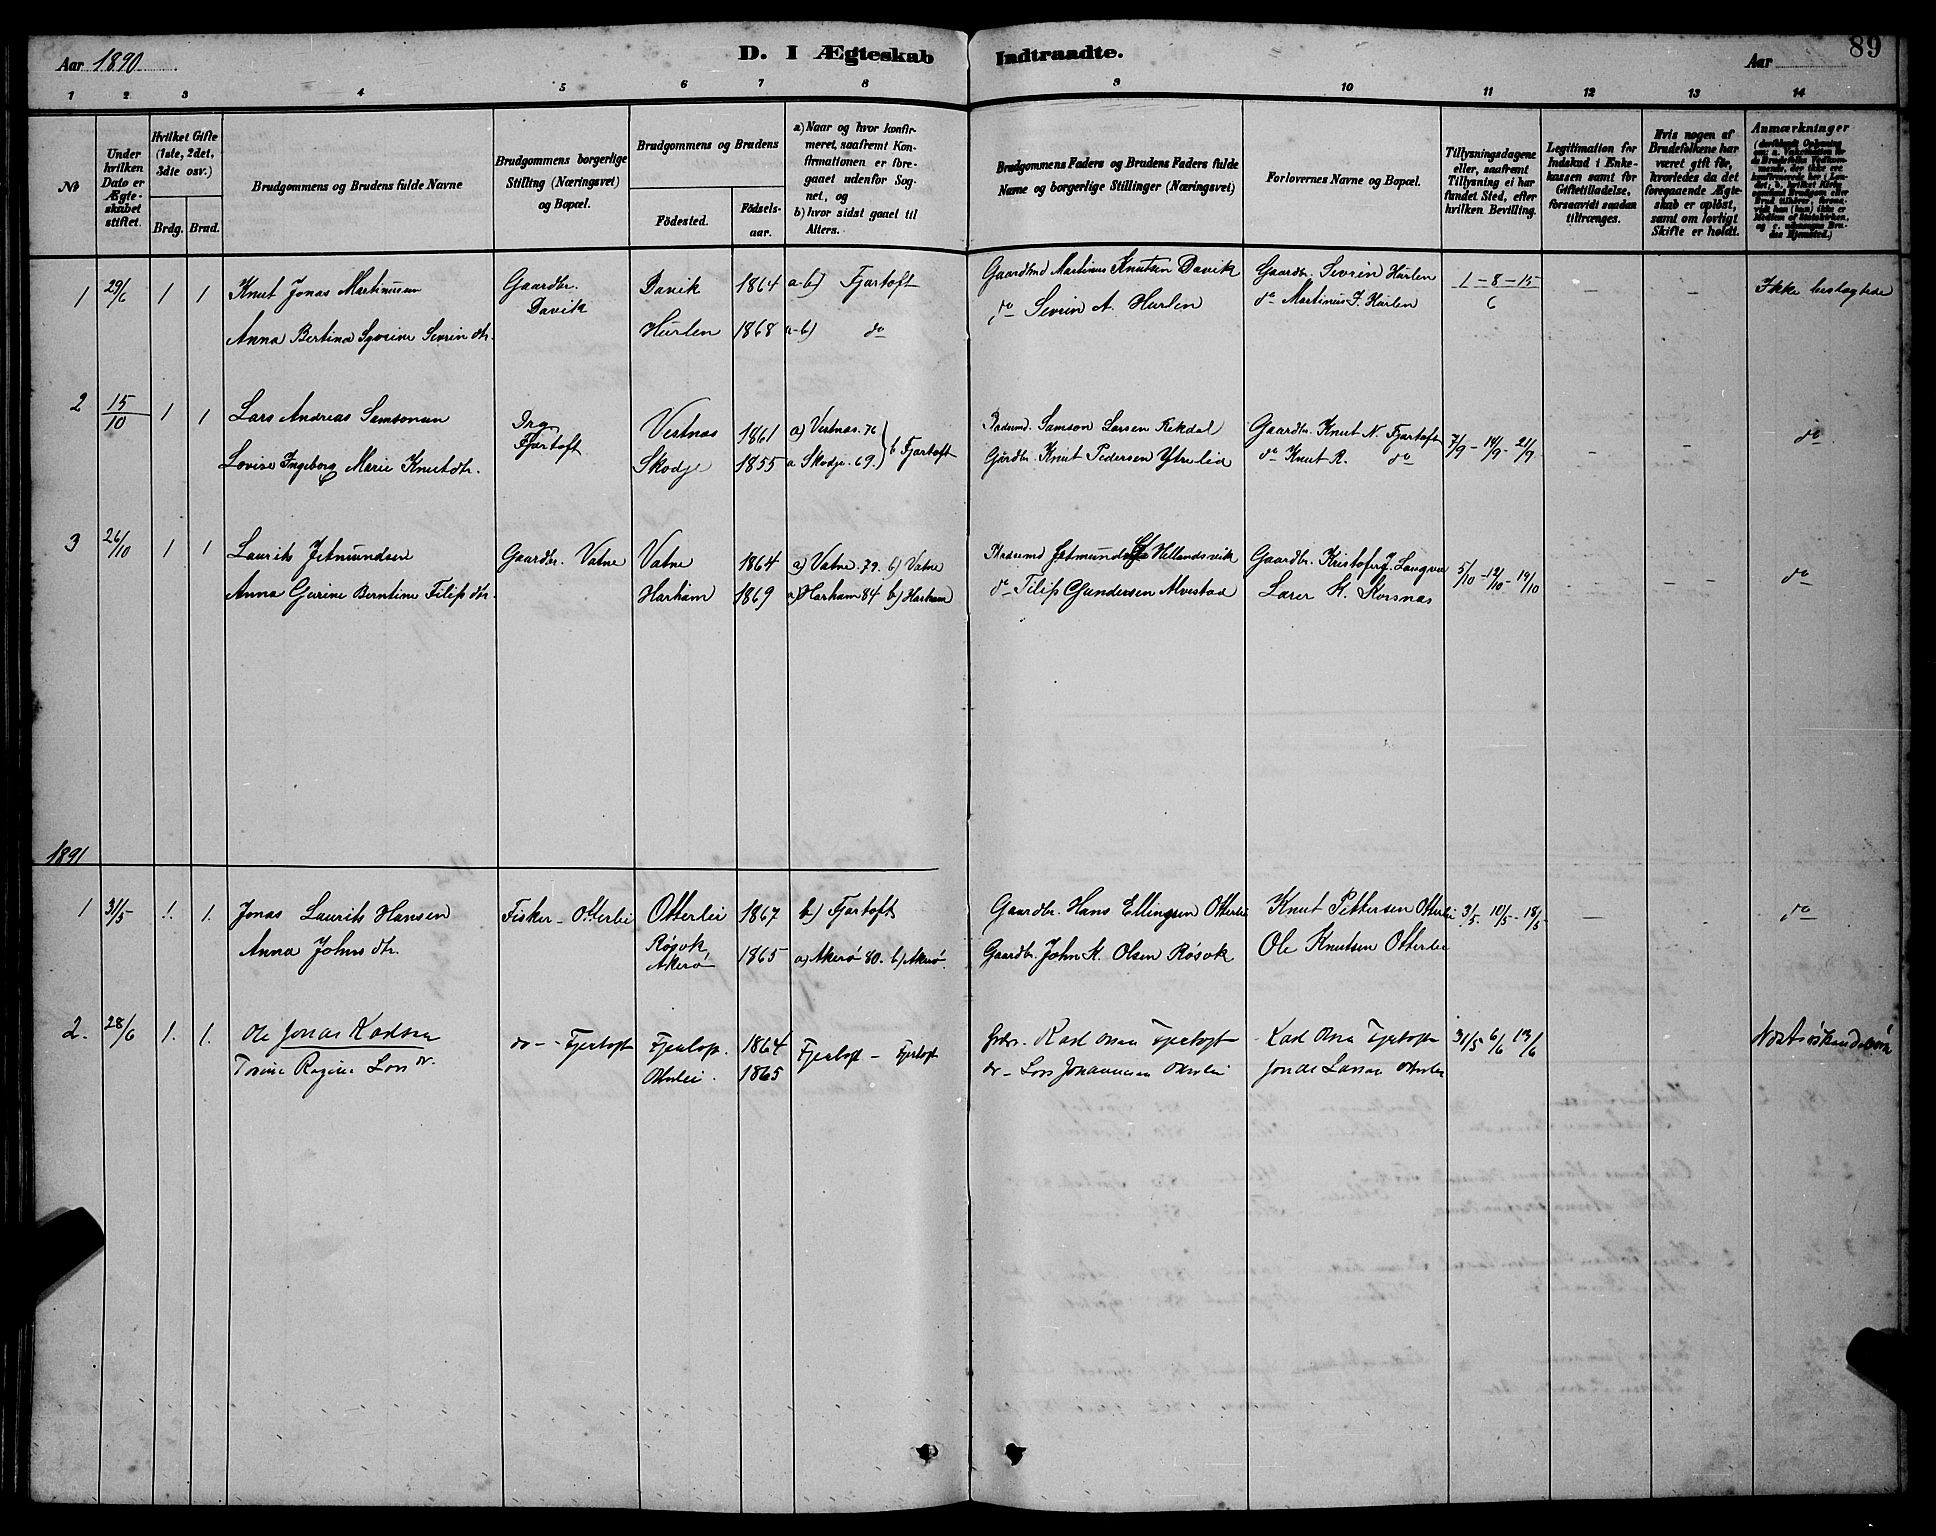 Aar 1890
D. I Ægteskab Indtraadte.
Aar
89
1 2 3 4 5 6 7 8 9 10 11 12 13 14
№
Under hvilken Dato er Ægteskabet stiftet.
Hvilket Gifte (1ste, 2det, 3die osv.)
Brdg. Brud.
Brudgommens og Brudens fulde Navne
Brudgommens borgerlige Stilling (Næringsvei) og Bopæl.
Brudgommens og Brudens
Födested.
Födselsaar.
a) Naar og hvor konfirmeret, saafremt Konfirmationen er foregaaet udenfor Sognet, og
b) hvor sidst gaaet til Alters.
Brudgommens Faders og Brudens Faders fulde Navne og borgerlige Stillinger (Næringsvei)
Forlovernes Navne og Bopæl.
Tillysningsdagene eller, saafremt Tillysning ei har fundet Sted, efter hvilken Bevilling.
Legitimation for Indskud i Enkekassen samt for Giftetilladelse, forsaavidt saadan tiltrænges.
Hvis nogen af Brudefolkene har været gift för, hvorledes da det foregaaende Ægteskab er oplöst, samt om lovligt Skifte er holdt.
Anmærkninger
1 29/6 1 1 Knut Jonas Martinussen Gaardbr. Davik Davik 1864 a-b) Fjørtoft Gaardmd Martinus Knutsen Davik Gaardbr. Sevrin Hurlen 1 - 8 - 15 / 6 — — Ikke beslægtede
Anna Bertina Syverine Sevrin dtr. Hurlen 1868 a-b) do do Sevrin A. Hurlen do Martinus J. Hurlen
2 15/10 1 1 Lars Andreas Samsonsen Fjørtoft Vestnæs 1861 a) Vestnæs. 76 b Fjørtoft Samson Larsen Rekdal Gaardbr. Knut N. Fjørtoft 7/9 - 14/9 - 21/9 — — do
Lovise Ingeborg Marie Knutdtr. Skodje 1855 a Skodje. 69. Gårdbr. Knut Pedersen Ytrelid do Knut R. do
3 26/10 1 1 Laurits Jetmundsen Gaardbr. Vatne Vatne 1864 a) Vatne. 79. b) Vatne Jetmund Hellandsvik Gaardbr. Kristofer J. 5/10 - 12/10 - 19/10 — — do
Anna Gurine Berntine Filip dtr. Harham 1869 a) Harham 84 b) Harham do Filip Gundersen Alvestad Lærer K. Korsnæs
1891
1 31/5 1. 1. Jonas Laurits Hansen Fisker - Otterlei Otterlei 1867 b) Fjørtoft Gaardbr. Hans Ellingsen Otterlei Knut Pettersen Otterlei 3/5 - 10/5 - 18/5 — — do
Anna Johns dtr. Røsok Akerø 1865 a) Akerø 80. b) Akerø. Gaardbr. John K. Olsen Røsok Ole Knutsen Otterlei
2. 28/6 1. 1. Ole Jonas Karlsen do - Fjertoft Fjertoft. 1864 Fjertoft - Fjertoft Karl Olsen Fjertoft Karl Olsen Fjertoft 31/5 6/6 13/6
Regine Lars dr. Otterlei. 1865 do - Lars Johannessen Otterlei Jonas Larsen Otterlei